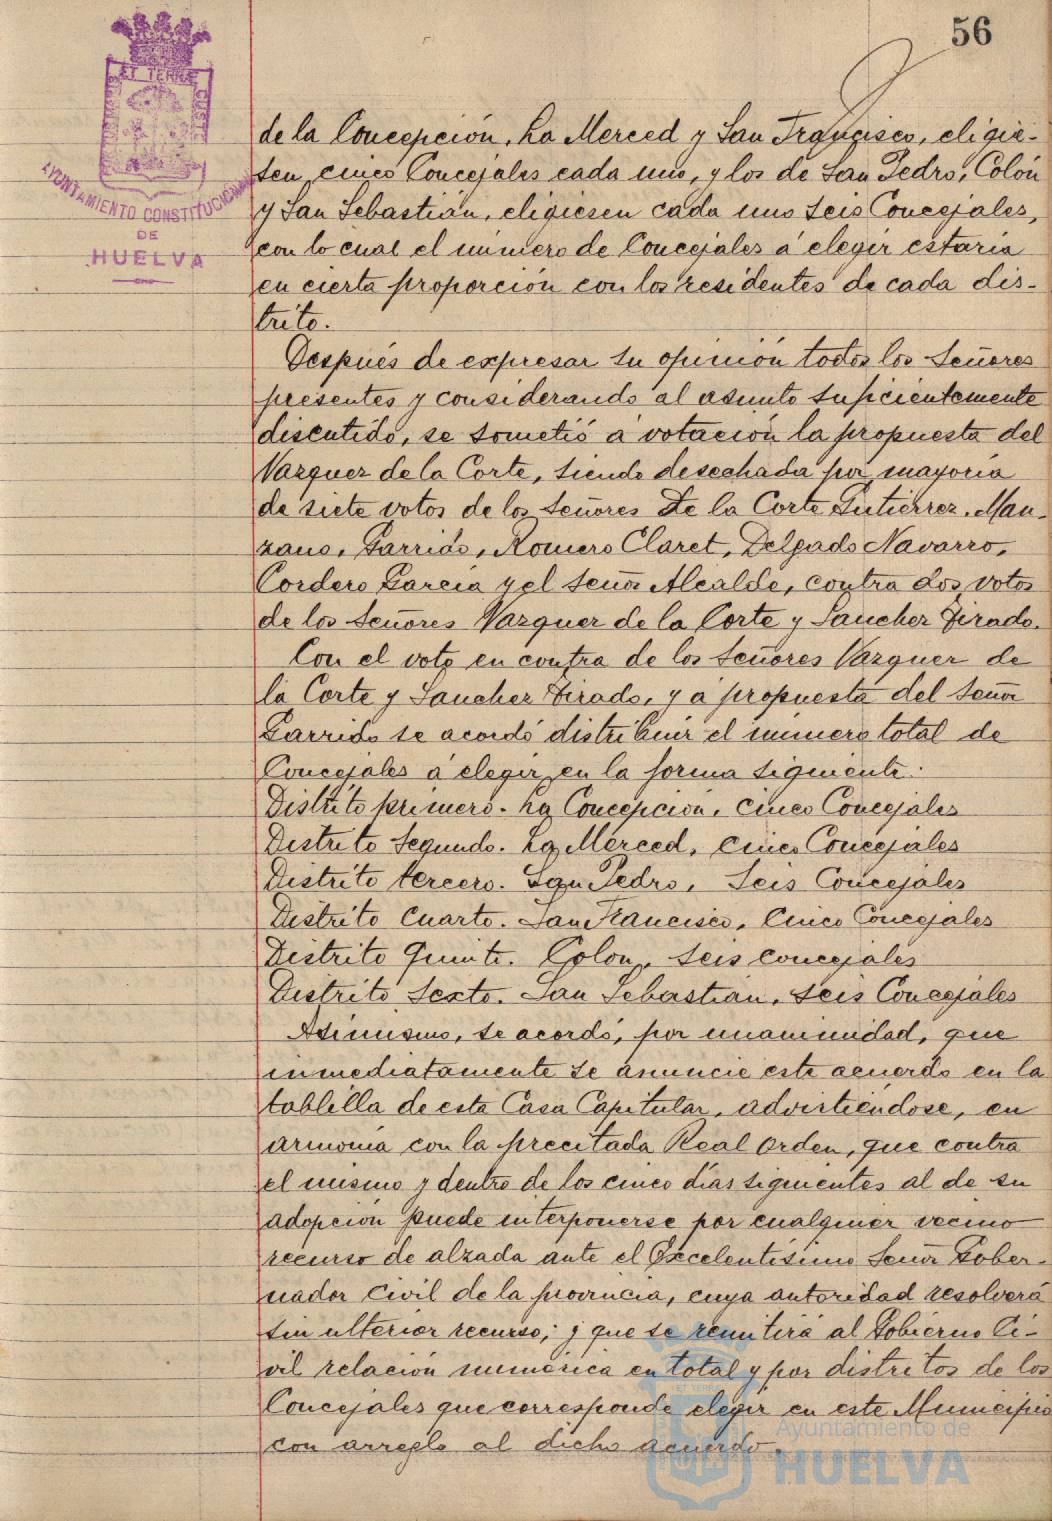 56
ET TERRÆ CUST
AYUNTAMIENTO CONSTITUCIONAL
DE
HUELVA
de la Concepción, La Merced y San Francisco, eligie-
sen cinco Concejales cada uno, y los de San Pedro, Colón
y San Sebastián, eligiesen cada uno seis Concejales,
con lo cual el número de Concejales á elegir estaría
en cierta proporción con los residentes de cada dis-
trito.
Después de expresar su opinión todos los señores
presentes y considerando al asunto suficientemente
discutido, se sometió a votación la propuesta del
Vazquez de la Corte, siendo desechada por mayoría
de siete votos de los señores De la Corte Gutierrez, Man-
zano, Garrido, Romero Claret, Delgado Navarro,
Cordero Garcia y el señor Alcalde, contra dos votos
de los señores Vazquez de la Corte y Sanchez Tirado.
Con el voto en contra de los señores Vazquez de
la Corte y Sanchez Tirado, y a propuesta del señor
Garrido se acordó distribuir el número total de
Concejales á elegir en la forma siguiente:
Distrito primero. La Concepción, cinco Concejales
Distrito segundo. La Merced, cinco Concejales
Distrito tercero. San Pedro, seis Concejales
Distrito cuarto. San Francisco, cinco Concejales
Distrito quinto. Colon, seis concejales
Distrito sexto. San Sebastian, seis Concejales
Asimismo, se acordó, por unanimidad, que
inmediatamente se anuncie este acuerdo en la
tablilla de esta Casa Capitular, advirtiendose, en
armonía con la precitada Real Orden, que contra
el mismo y dentro de los cinco días siguientes al de su
adopción puede interponerse por cualquier vecino
recurso de alzada ante el Excelentísimo Señor Gober-
nador Civil de la provincia, cuya autoridad resolverá
sin ulterior recurso; y que se remitirá al Gobierno Ci-
vil relación numérica en total y por distritos de los
Concejales que corresponde elegir en este Municipio
con arreglo al dicho acuerdo.
Ayuntamiento de
HUELVA